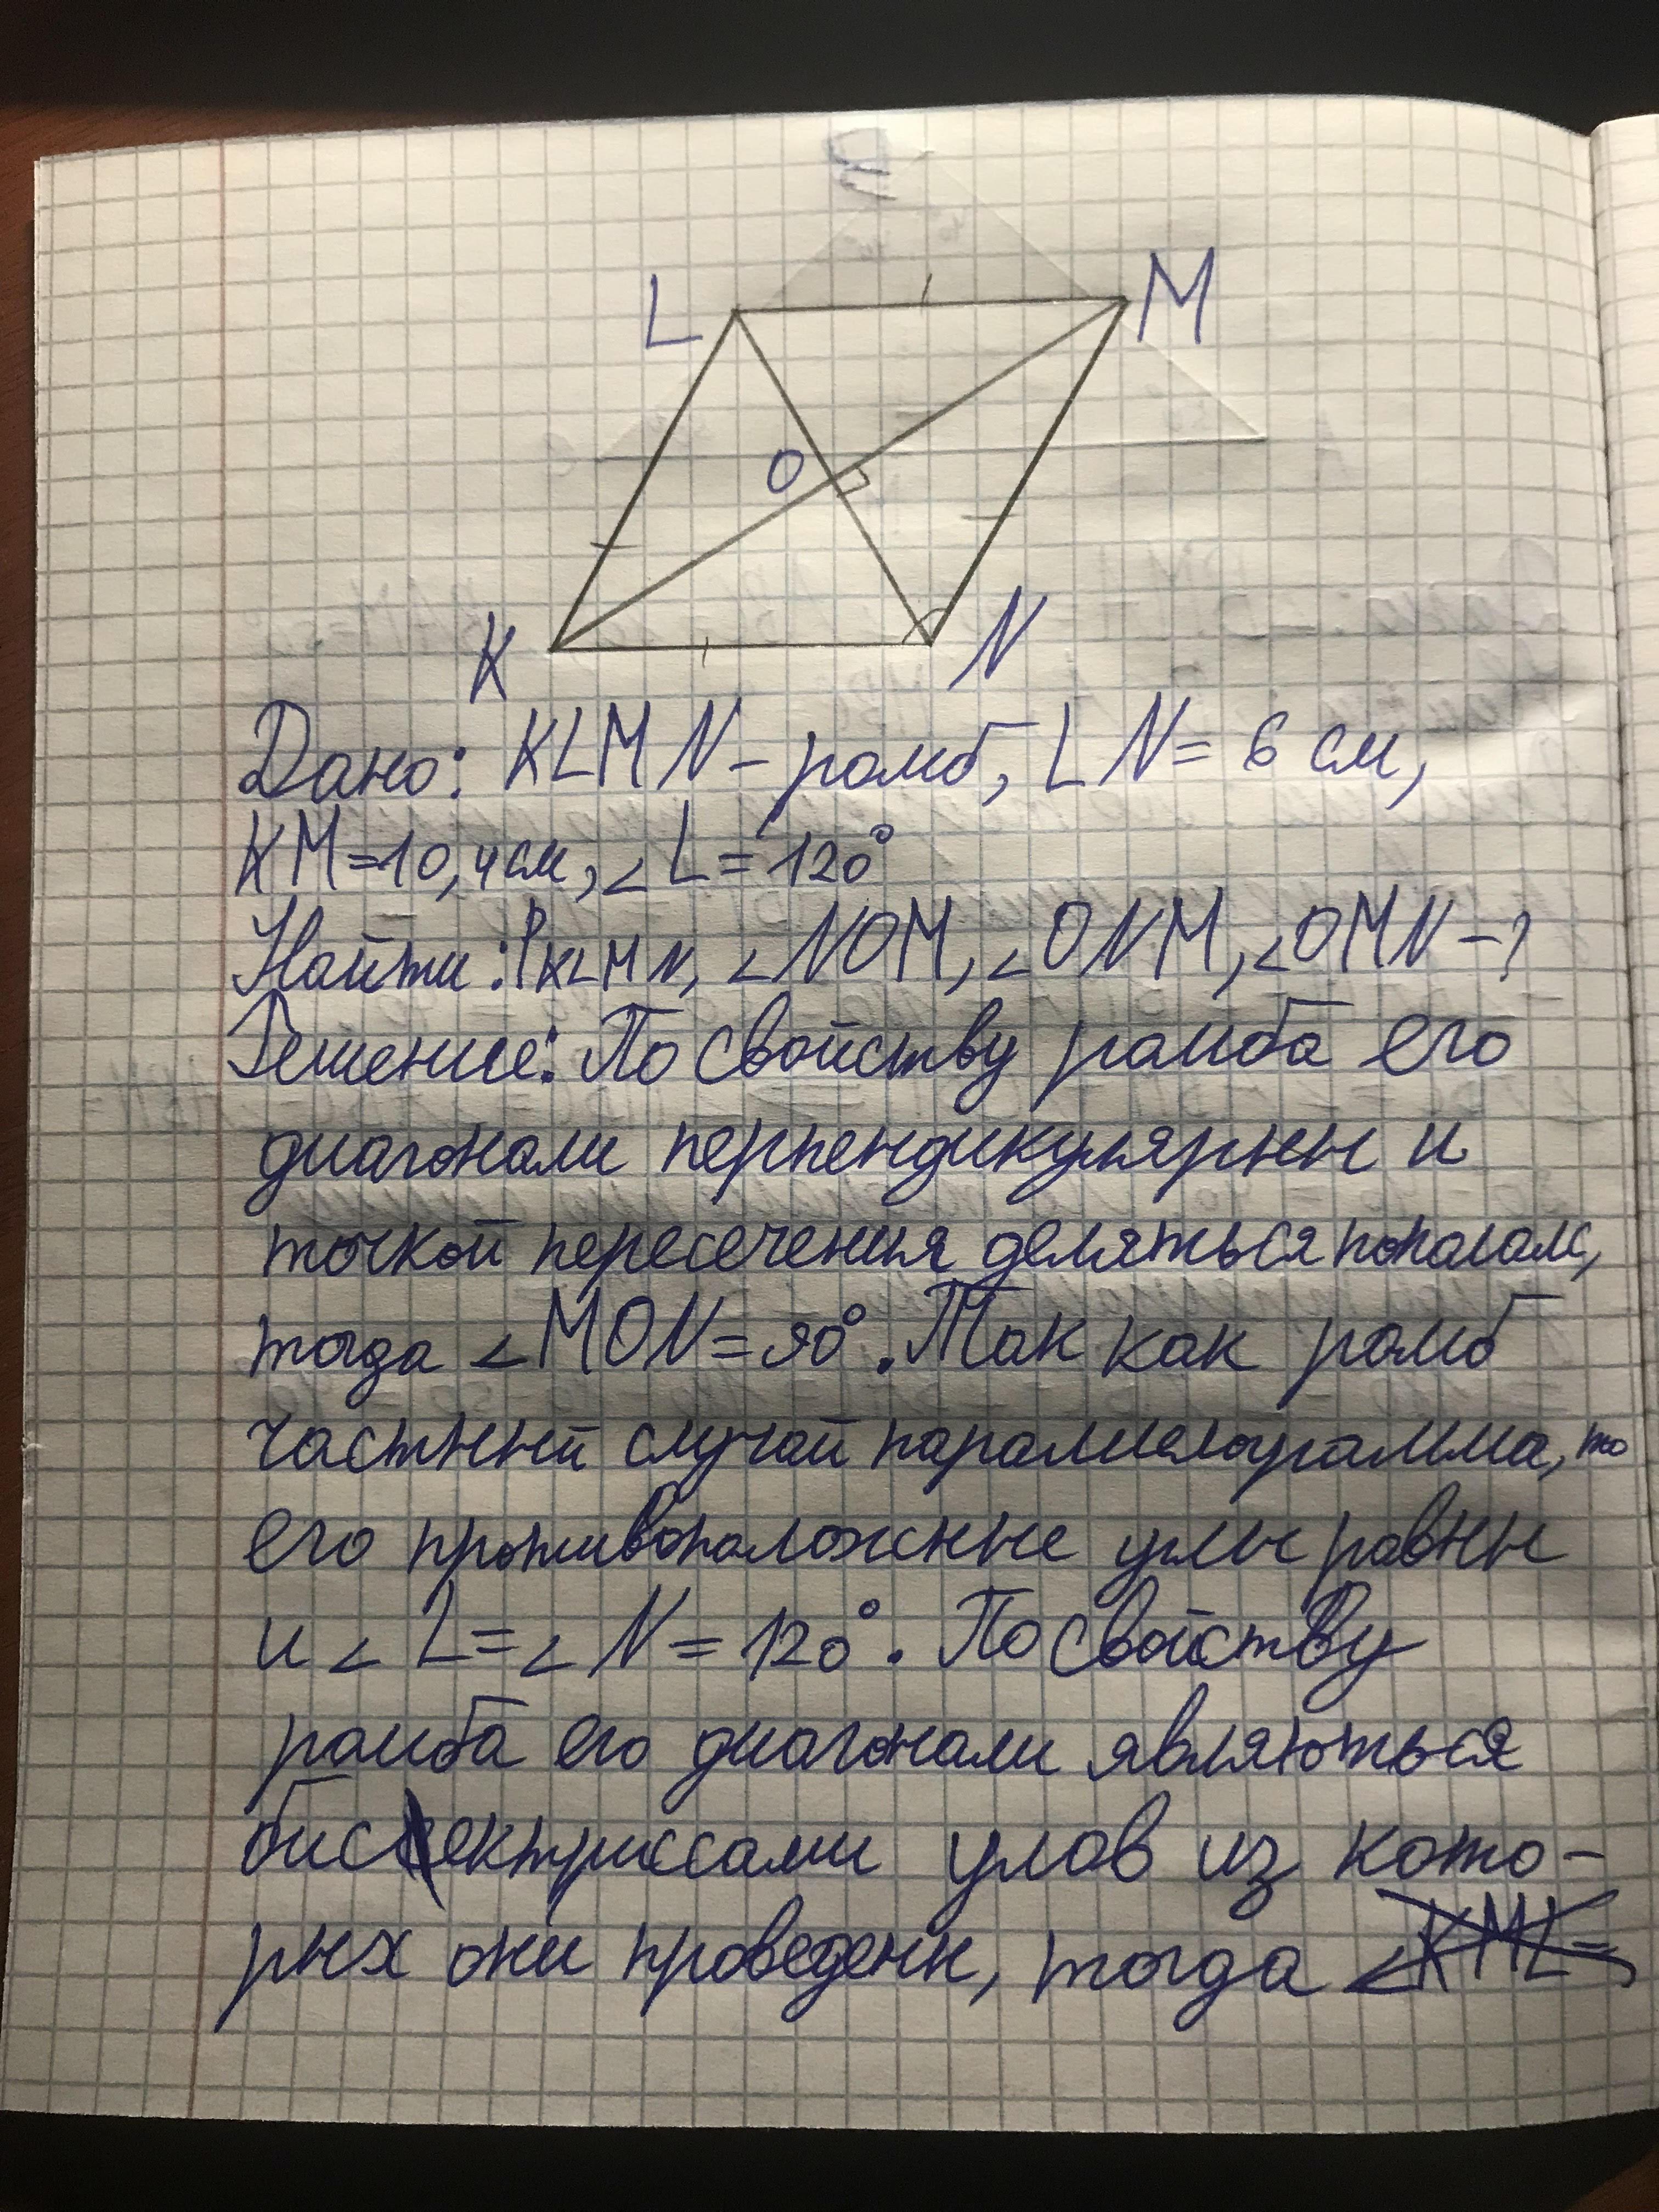 L
M
O
K
N
Дано: KLMN – ромб, LN = 6 см,
KM=10,4см, ∠L = 120°
Найти: P KLMN, ∠NOM, ∠ONM, ∠OMN – ?
Решение: По свойству ромба его
диагонали перпендикулярны и
точкой пересечения деляться пополам,
тогда ∠MON = 90°. Так как ромб
частный случай параллелограмма, то
его противоположные углы равны
и ∠L = ∠N = 120°. По свойству
ромба его диагонали являються
биссектриссами углов из кото-
рых они проведены, тогда ∠KML=